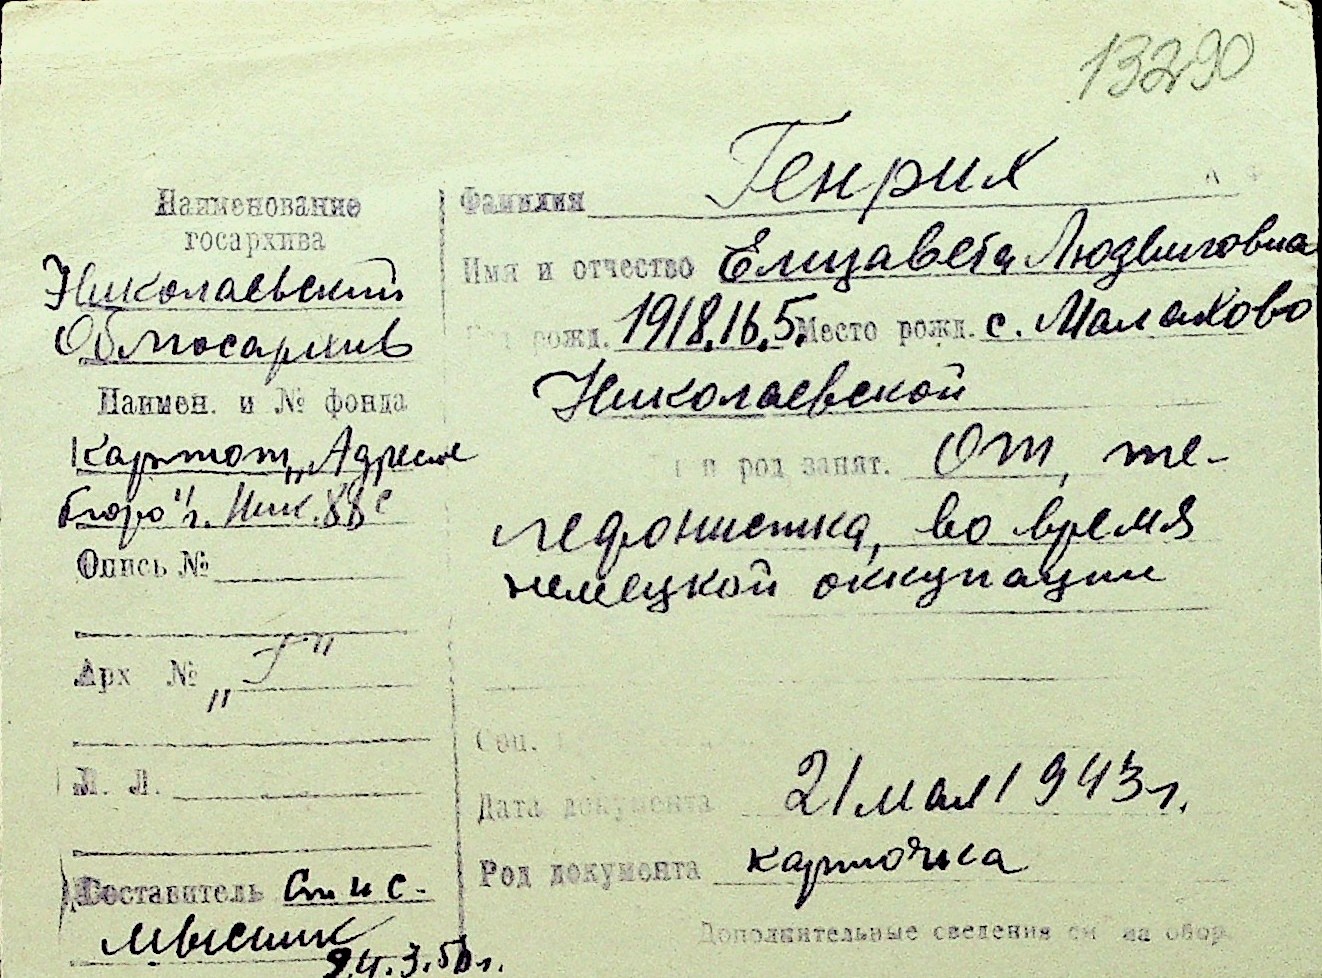 13290
Наименование
госархива
Николаевский
Облгосархив
Наимен. и № фонда
Картот. „Адресное
бюро" г. Ник.
Опись №
Арх № „Г"
Л. Л.
Составитель
24.3.50г.
Фамилия Генрих
Имя и отчество Елизавета Людвиговна
рожд. 1918.16.5. Место рожд. с. Малахово
Николаевской
и род занят. От, те-
лефонистка, во время
немецкой оккупации
Соц.
Дата документа 21 мая 1943г.
Род документа карточка
Дополнительные сведения см на обор.